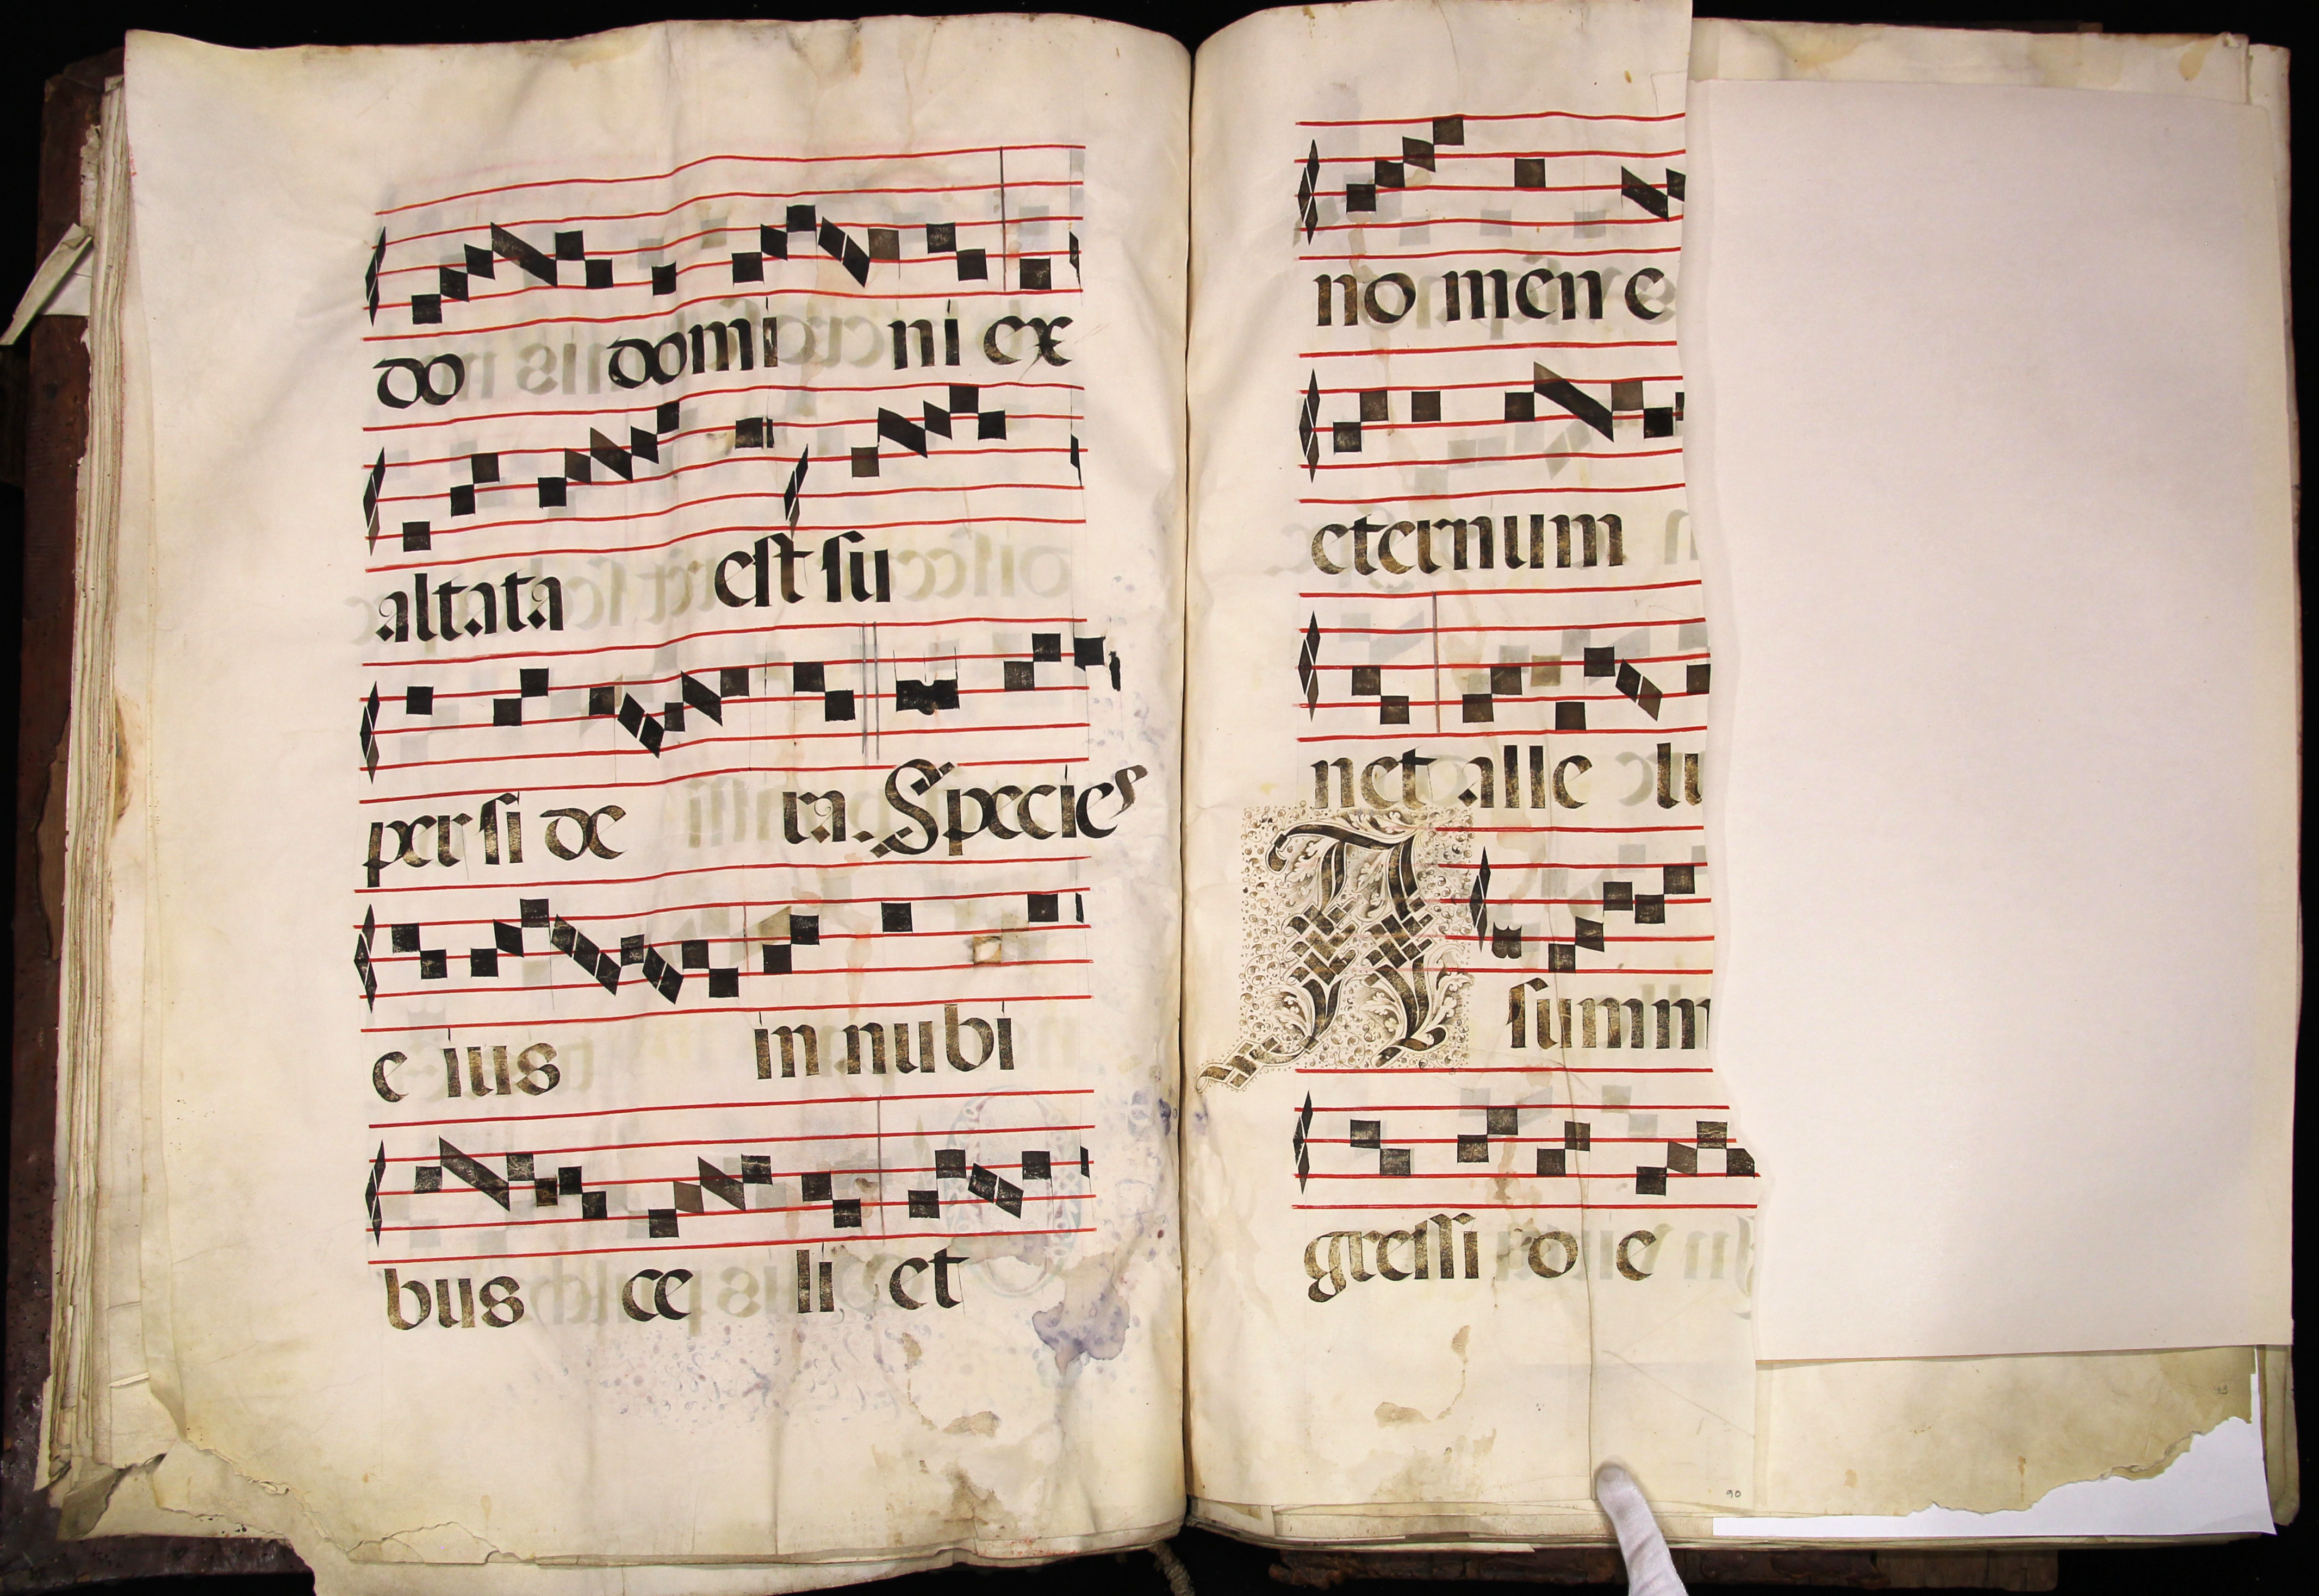 do domi ni ex
altata est su
per si de ra. Species
e ius in nubi
bus ce li et
no men e
eternum
net alle lu
A summ
gressi o e
90